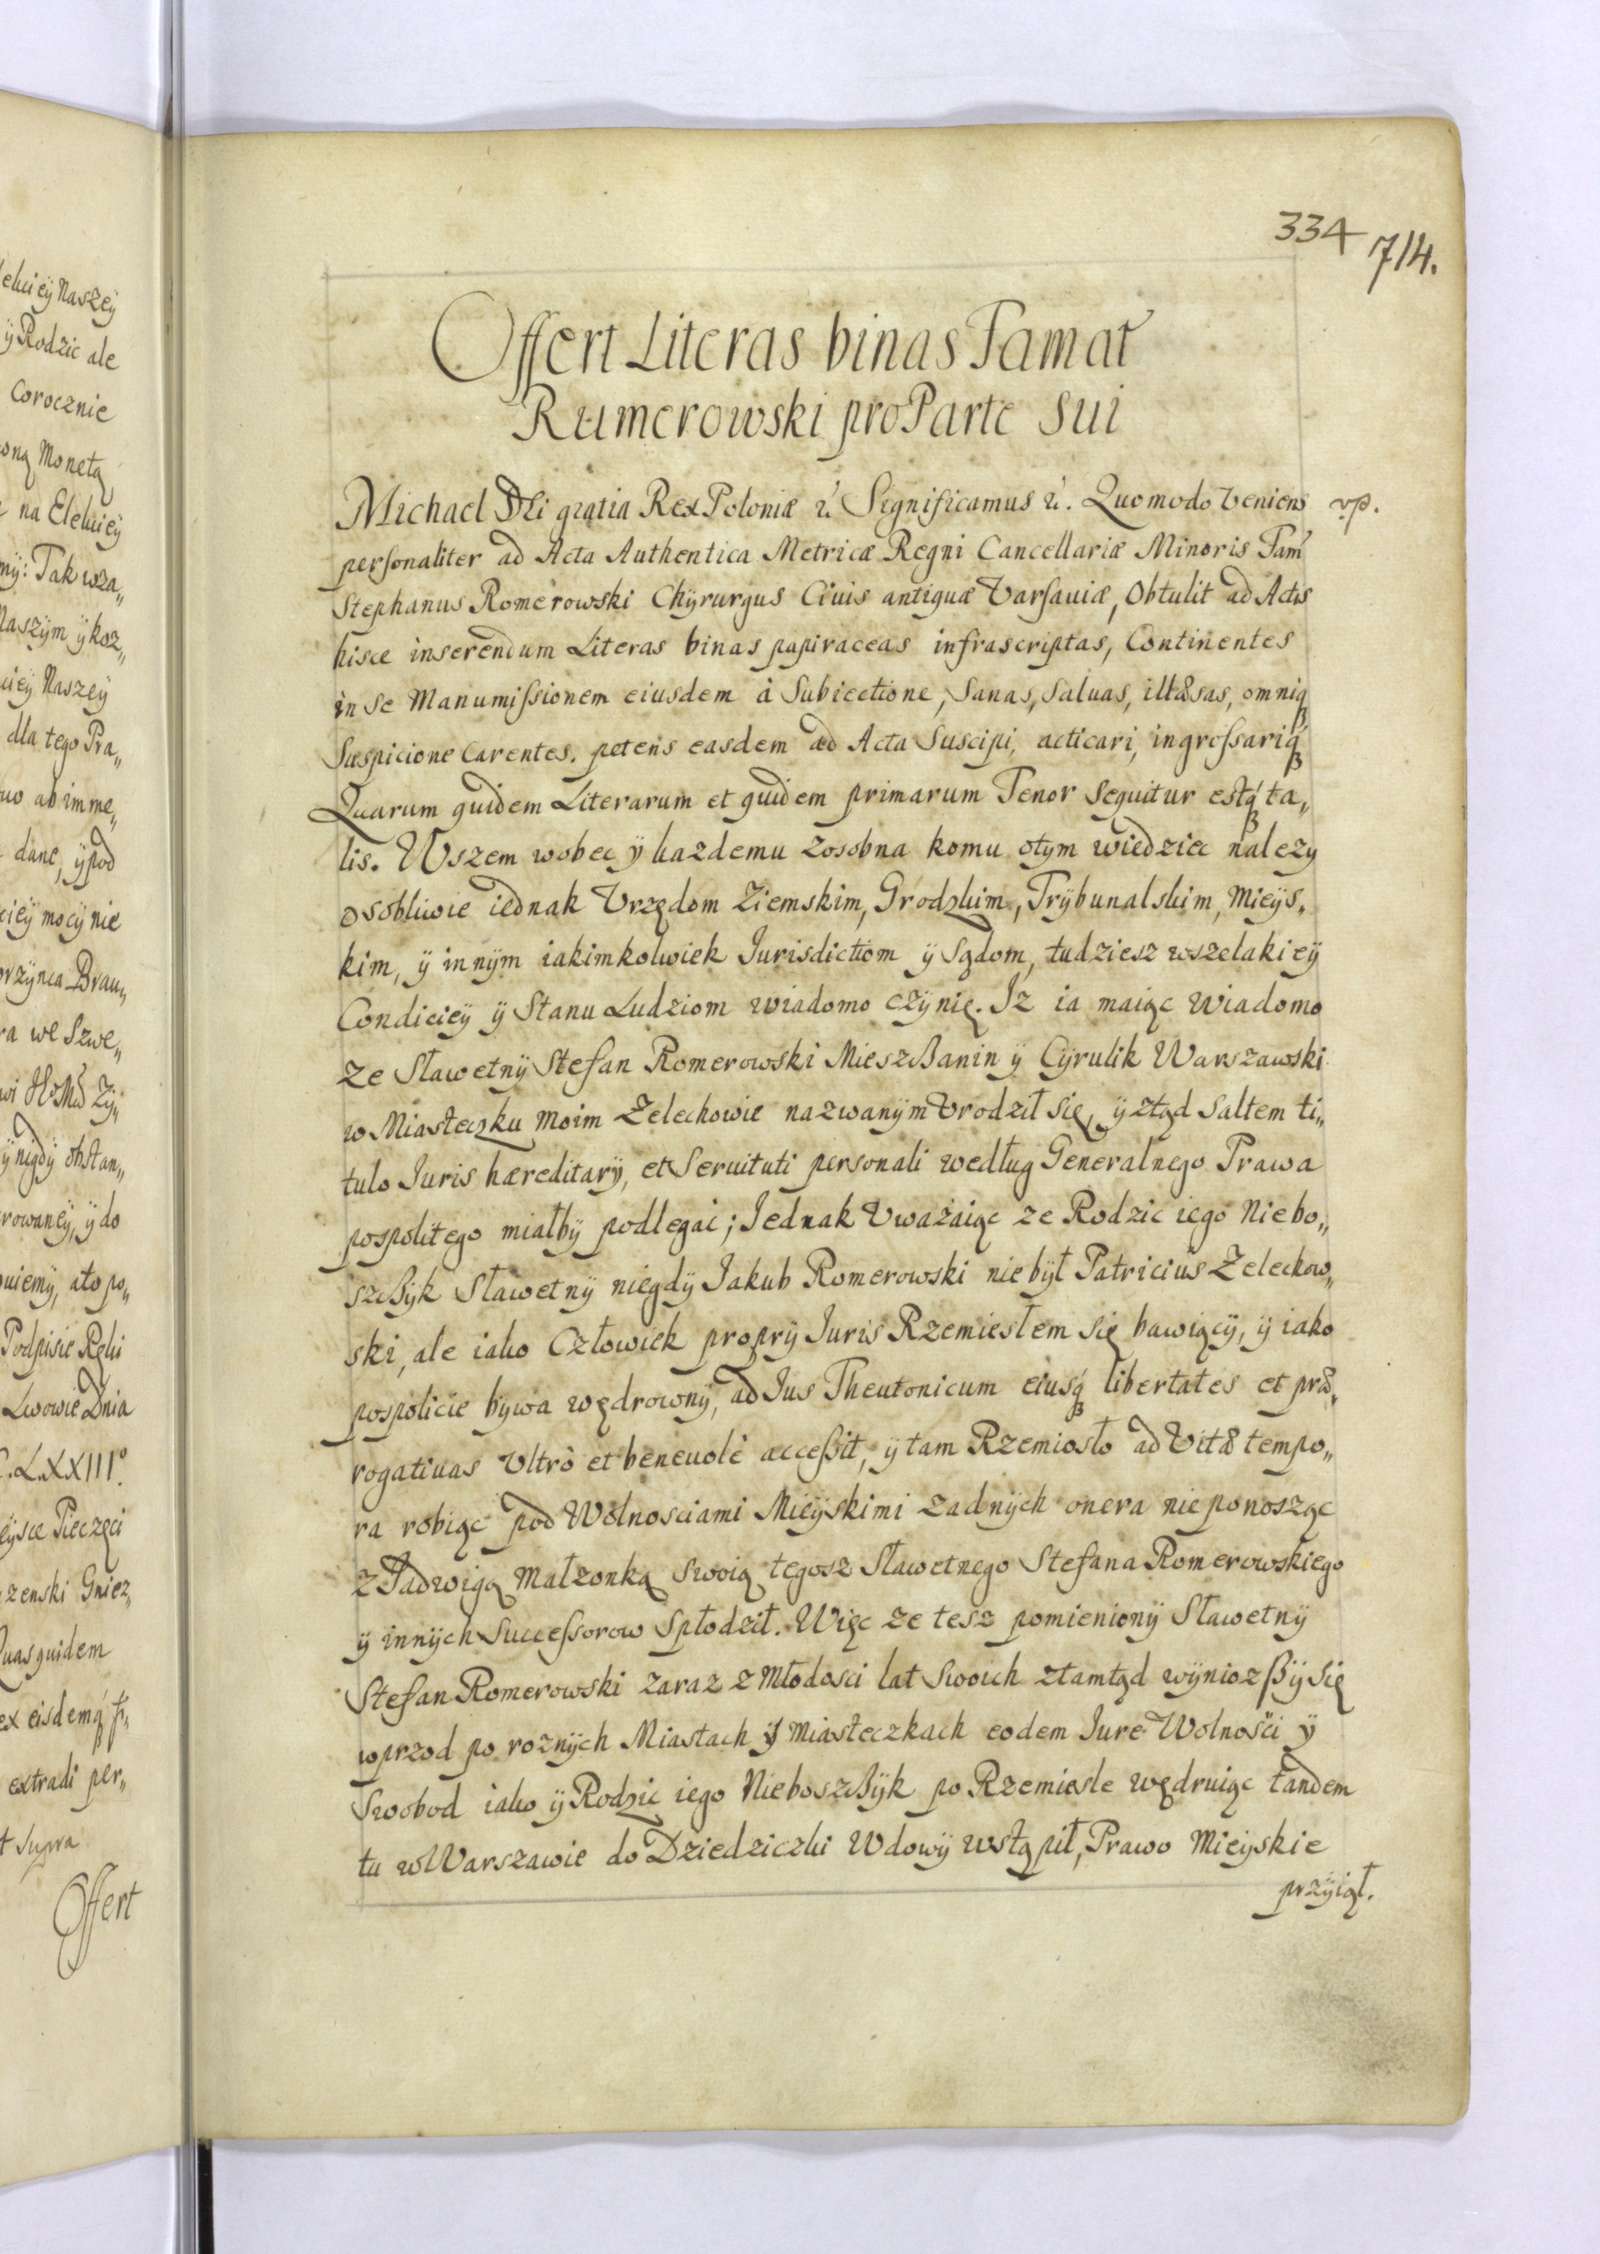 elciey Naszey
y Rodzic ale
Corocznie
oną Monetą
na Elekciey
my: Tak wza„
Naszym y koz„
ciey Naszey
dla tego Pra„
uo ab imme„
dane, ypod
ciey mocy nie
orzynca Brau„
ra we Szwe„
y nigdy obstan„
rowaney, y do
uiemy, a to po„
Podpisie Ręki
Lwowie Dnia
C.LXXIII°.
eysce Pieczęci
zenski Gniez„
Quas quidem
ex eisdemq́
extradi per„
t supra
Offert
334
714.
Offert Literas binas Famat
Rumerowski pro Parte Sui
Michael Dei gratia Rex Poloniæ &. Significamus &. Quomodo veniens
vp.
personaliter ad Acta Authentica Metricæ Regni Cancellariæ Minoris Fam
Stephanus Romerowski Chyrurgus Ciuis antiquæ Varsauiæ, Obtulit ad Actis
hisce inserendum Literas binas papiraceas infrascriptas, Continentes
in se Manumissionem eiusdem à Subiectione, Sanas, Saluas, illæsas, omniq́
Suspicione Carentes. petens easdem ad Acta Suscipi, acticari, ingrossariq́
Quarum quidem Literarum et quidem primarum Tenor Sequitur estq́ ta„
lis. Wszem wobec y kazdemu zosobna komu otym wiedziec nalezy
osobliwie iednak Vrzędom Ziemskim, Grodzkim, Trybunalskim, Mieys„
kim, y innym iakimkolwiek Iurisdictiom y Sądom, tudziesz wszelakiey
Condiciey y Stanu Ludziom wiadomo czynię. Iz ia maiąc Wiadomo
ze Sławetny Stefan Romerowski Mieszßanin y Cyrulik Warszawski
w Miasteczku Moim Zelechowie nazwanym Vrodził się, y ztąd Saltem ti„
tulo Iuris hæreditary, et Seruituti personali według Generalnego Prawa
pospolitego miałby podlegac; Iednak Vważaiąc ze Rodzic iego Niebo„
szßyk Sławetny niegdy Iakub Romerowski nie był Patricius Zelechow„
ski, ale iako Człowiek propry Iuris Rzemiesłem się bawiący, y iako
pospolicie bywa wędrowny, ad Ius Theutonicum eiusq́ libertates et præ„
rogatiuas Vltrò et beneuolè acceßit, y tam Rzemiosło ad Vitæ tempo„
ra robiąc pod Wolnosciami Mieyskimi zadnych onera nieponosząc
z Iadwigą Małzonką Swoią tegosz Sławetnego Stefana Romerowskiego
y innych Successorow Spłodził. Więc ze tesz pomieniony Sławetny
Stefan Romerowski zaraz z Młodosci lat Swoich ztamtąd wyniozßy się
wprzod po roznych Miastach y Miasteczkach eodem Iure Wolności y
Swobod iako y Rodzic iego Nieboszßyk po Rzemiesle wędruiąc tandem
tu w Warszawie do Dziedziczki Wdowy wstąpił, Prawo Mieyskie
przyiął.